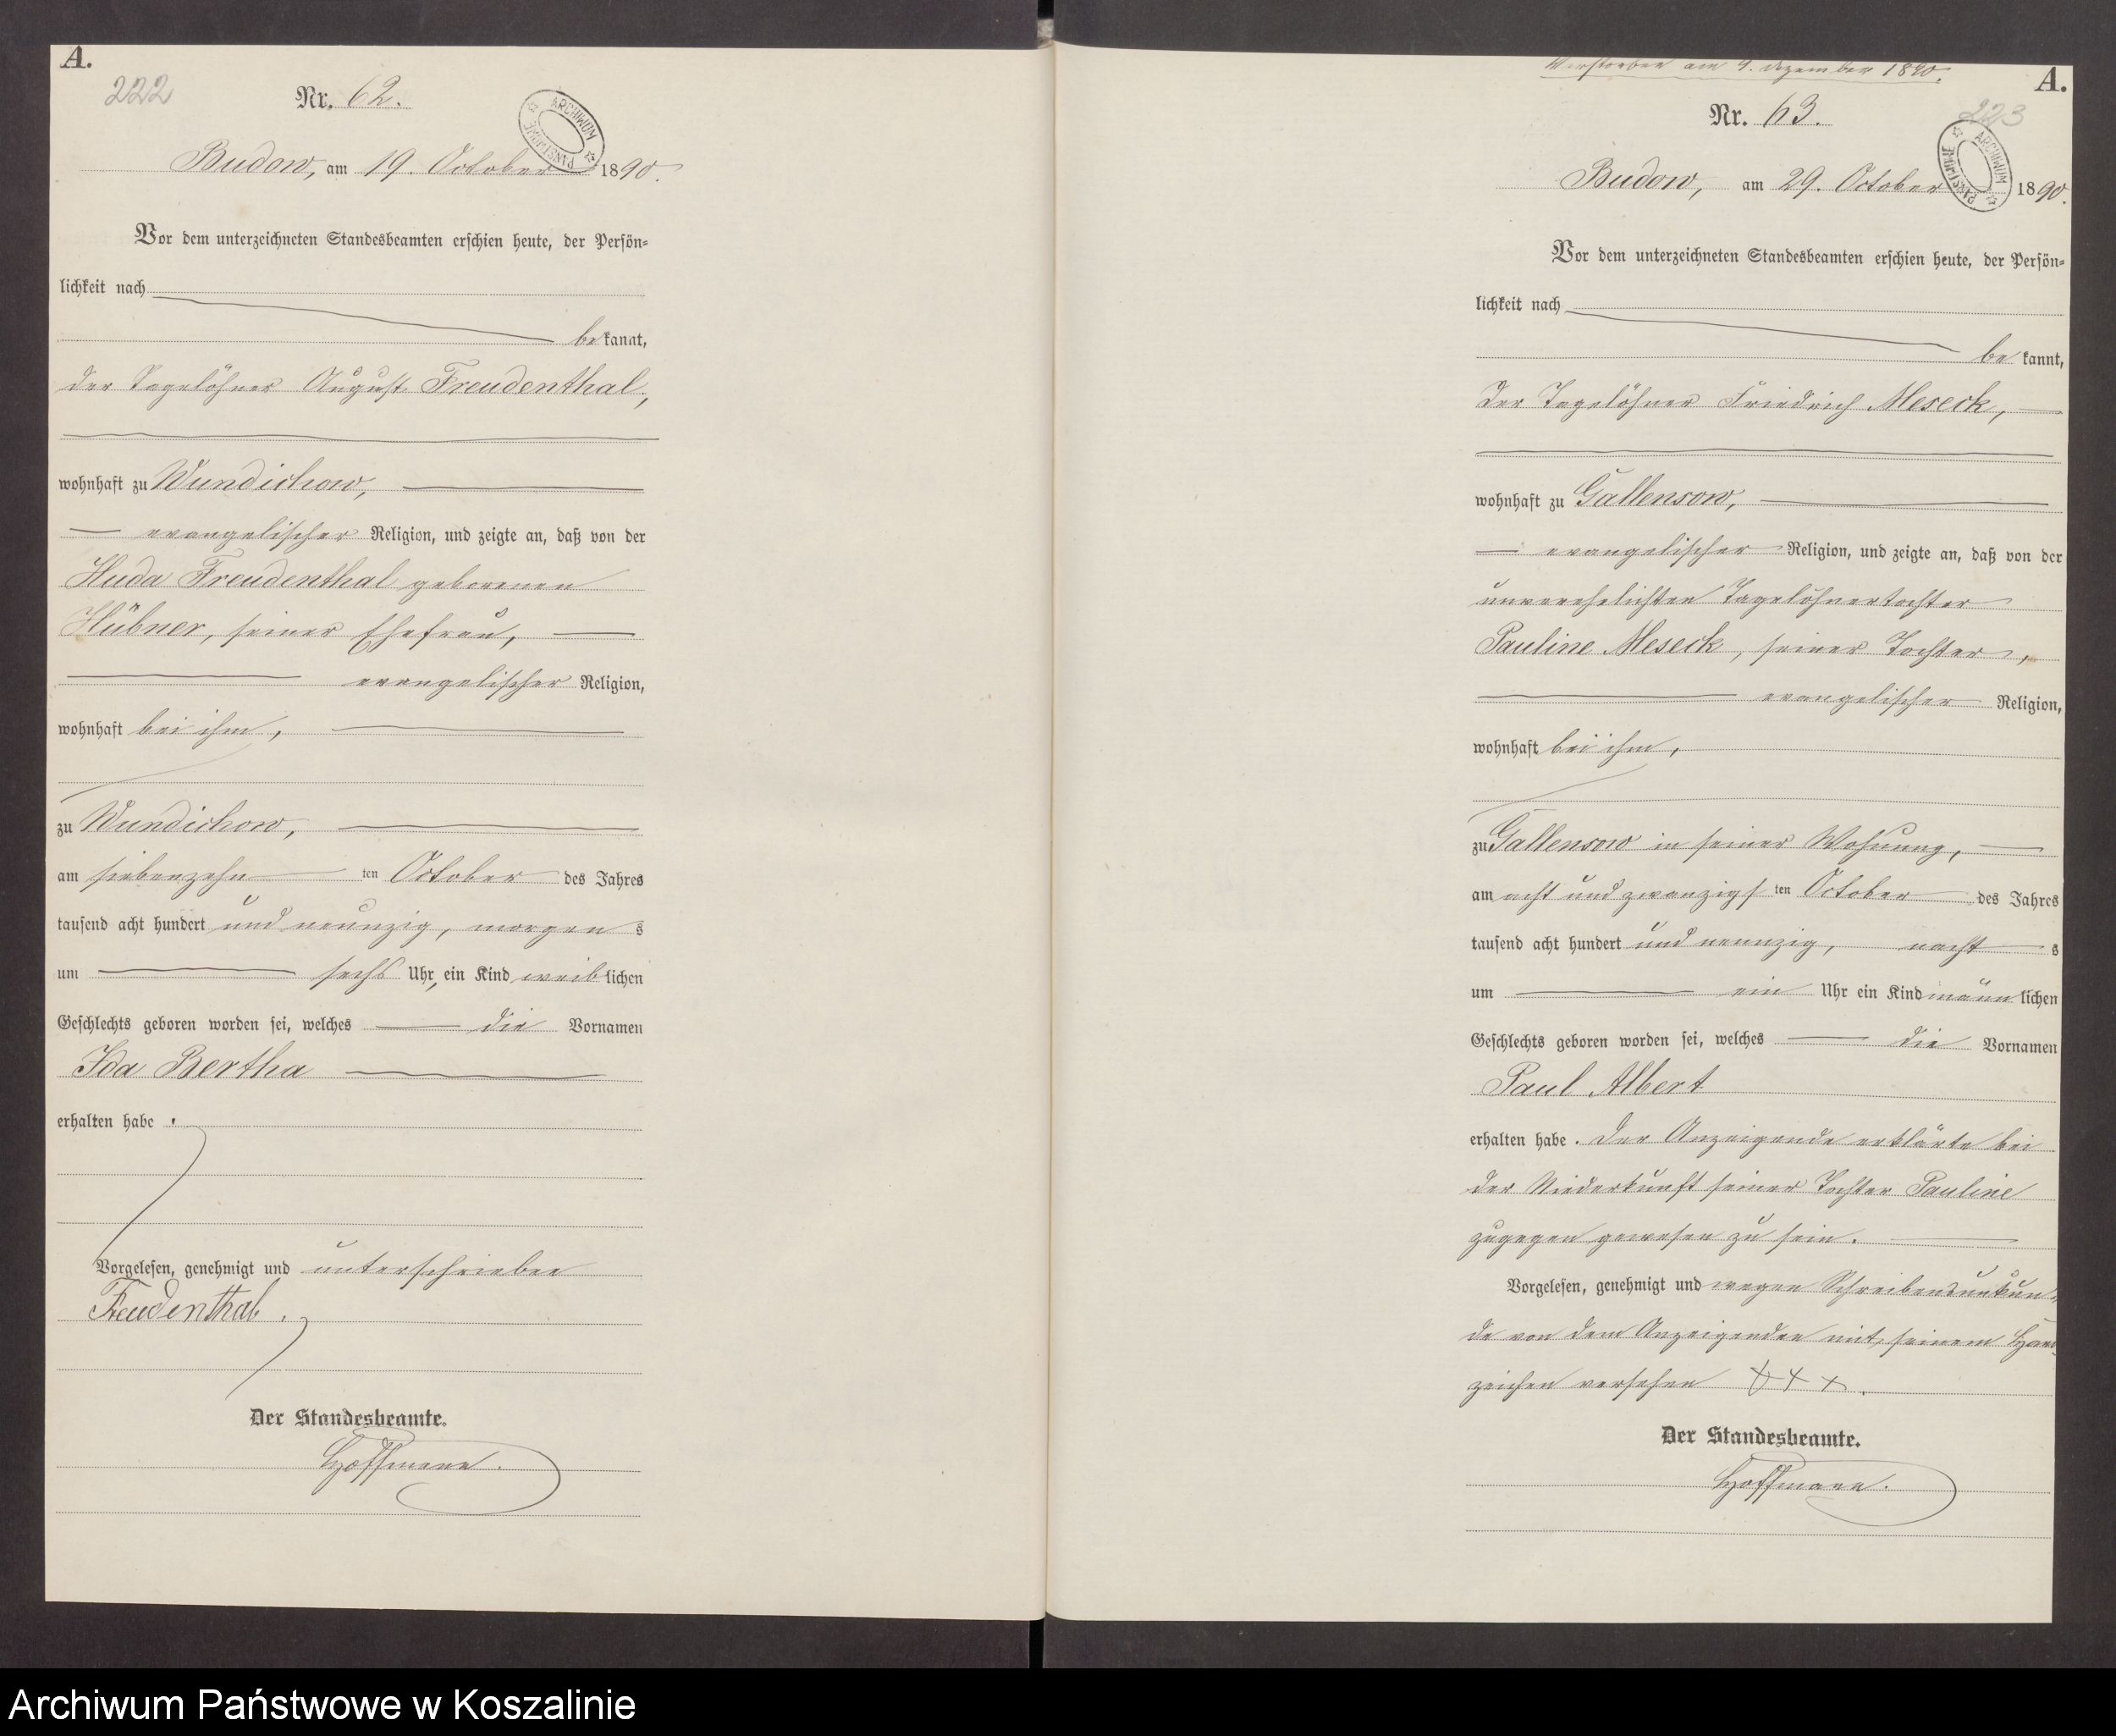 A.
222
Nr. 62.
ARCHIWUM PAŃSTWOWE
Budow, am 19. October 1890.
Vor dem unterzeichneten Standesbeamten erschien heute, der Persön-
lichkeit nach
bekannt,
der Tagelöhner August Freudenthal,
wohnhaft zu Wundichow,
evangelischer Religion, und zeigte an, daß von der
Huda Freudenthal geborenen
Hübner, seiner Ehefrau,
evangelischer Religion,
wohnhaft bei ihm,
zu Wundichow,
am siebenzehn ten October des Jahres
tausend acht hundert und neunzig, morgens
um sechs Uhr, ein Kind weiblichen
Geschlechts geboren worden sei, welches die Vornamen
Ida Bertha
erhalten habe.
Vorgelesen, genehmigt und unterschrieben
Freudenthal.
Der Standesbeamte.
Hoffmann.
Verstorben am 9. Dezember 1890.
A.
223
Nr. 63.
ARCHIWUM PAŃSTWOWE
Budow, am 29. October 1890.
Vor dem unterzeichneten Standesbeamten erschien heute, der Persön-
lichkeit nach
be kannt,
der Tagelöhner Friedrich Meseck,
wohnhaft zu Gallensow,
evangelischer Religion, und zeigte an, daß von der
unverehelichten Tagelöhnertochter
Pauline Meseck, seiner Tochter,
evangelischer Religion,
wohnhaft bei ihm,
zu Gallensow in seiner Wohnung,
am acht und zwanzigsten October des Jahres
tausend acht hundert und neunzig, nachts
um ein Uhr ein Kind männlichen
Geschlechts geboren worden sei, welches die Vornamen
Paul Albert
erhalten habe. Der Anzeigende erklärte bei
der Niederkunft seiner Tochter Pauline
zugegen gewesen zu sein.
Vorgelesen, genehmigt und wegen Schreibensunkun-
de von dem Anzeigenden mit seinem Hand-
zeichen versehen +++.
Der Standesbeamte.
Hoffmann.
Archiwum Państwowe w Koszalinie